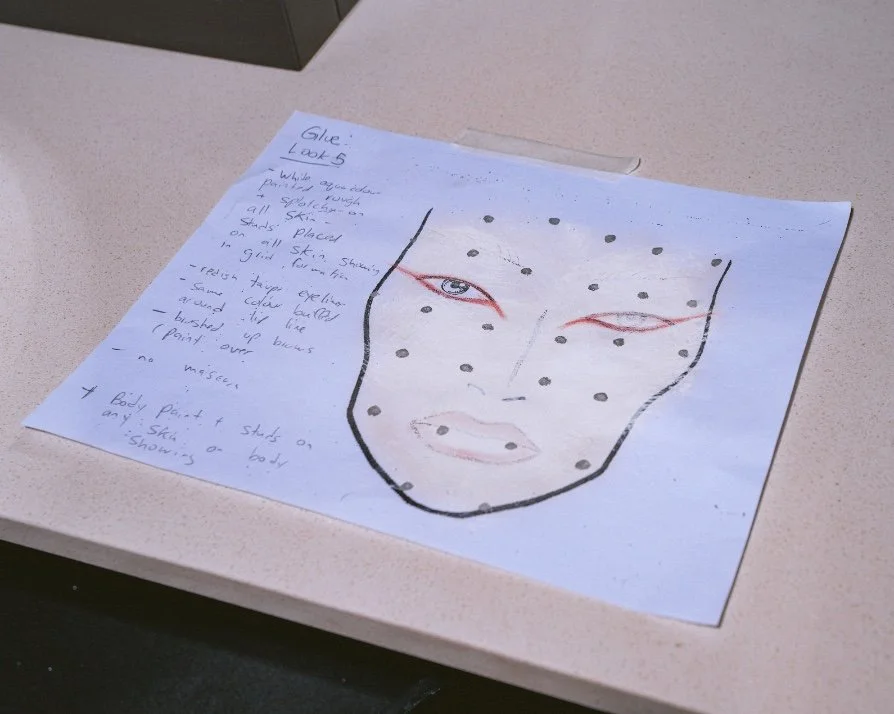 Glue:
Look 5
- White aquacolour
painted rough
+ splotchy on
all skin -
studs placed
on all skin showing
in grid formation
- redish taupe eyeliner
- Same colour buffed
around lid line
- brushed up brows
(paint over
- no mascara
+ Body paint + studs on
any skin on body
showing